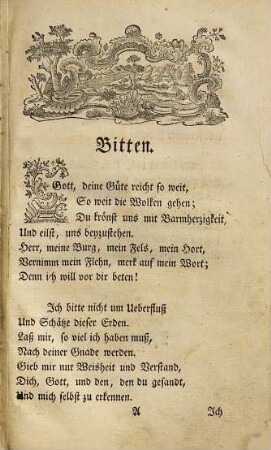 Bitten.
Gott, deine Güte reicht so weit,
So weit die Wolken gehen;
Du krönst uns mit Barmherzigkeit,
Und eilst, uns beyzustehen.
Herr, meine Burg, mein Fels, mein Hort,
Vernimm mein Flehn, merk auf mein Wort;
Denn ich will vor dir beten!
Ich bitte nicht um Ueberfluß
Und Schätze dieser Erden.
Laß mir, so viel ich haben muß,
Nach deiner Gnade werden.
Gieb mir nur Weisheit und Verstand,
Dich, Gott, und den, den du gesandt,
Und mich selbst zu erkennen.
A Ich